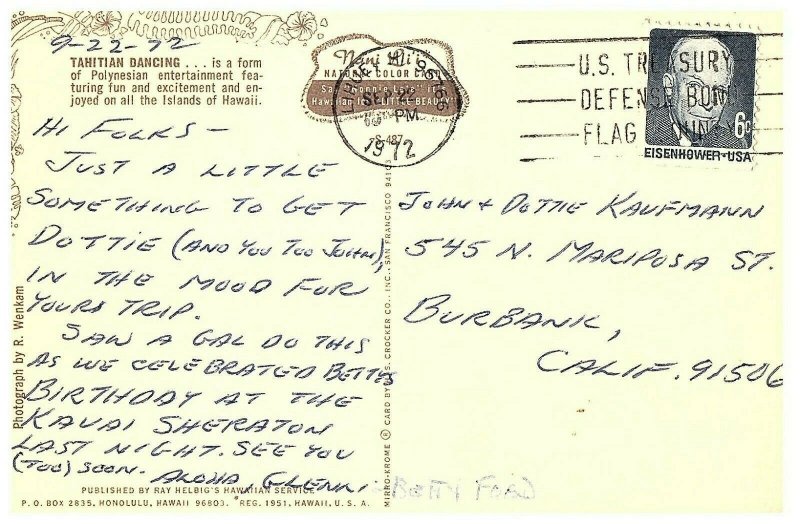 9-22-72
TAHITIAN DANCING . . . is a form
of Polynesian entertainment fea-
turing fun and excitement and en-
joyed on all the Islands of Hawaii.
Nani Li'i
NATURAL COLOR CARD
Hawaiian for "LITTLE BEAUTY"
S-487
PM
1972
U.S. TREASURY
DEFENSE BOND
FLAG
6c
EISENHOWER·USA
HI FOLKS –
JUST A LITTLE
SOMETHING TO GET
DOTTIE (AND YOU TOO JOHN),
IN THE MOOD FOR
YOURS TRIP.
SAW A GAL DO THIS
AS WE CELEBRATED BETTYS
BIRTHDAY AT THE
KAUAI SHERATON
LAST NIGHT. SEE YOU
(TOO) SOON.
ALOHA, GLENN,
– BETTY FORD
JOHN + DOTTIE KAUFMANN
545 N. MARIPOSA ST.
BURBANK,
CALIF. 91506
Photograph by R. Wenkam
MIRRO-KROME ® CARD BY H. S. CROCKER CO., INC., SAN FRANCISCO 94103
PUBLISHED BY RAY HELBIG'S HAWAIIAN SERVICE
P. O. BOX 2835, HONOLULU, HAWAII 96803. REG. 1951, HAWAII, U. S. A.